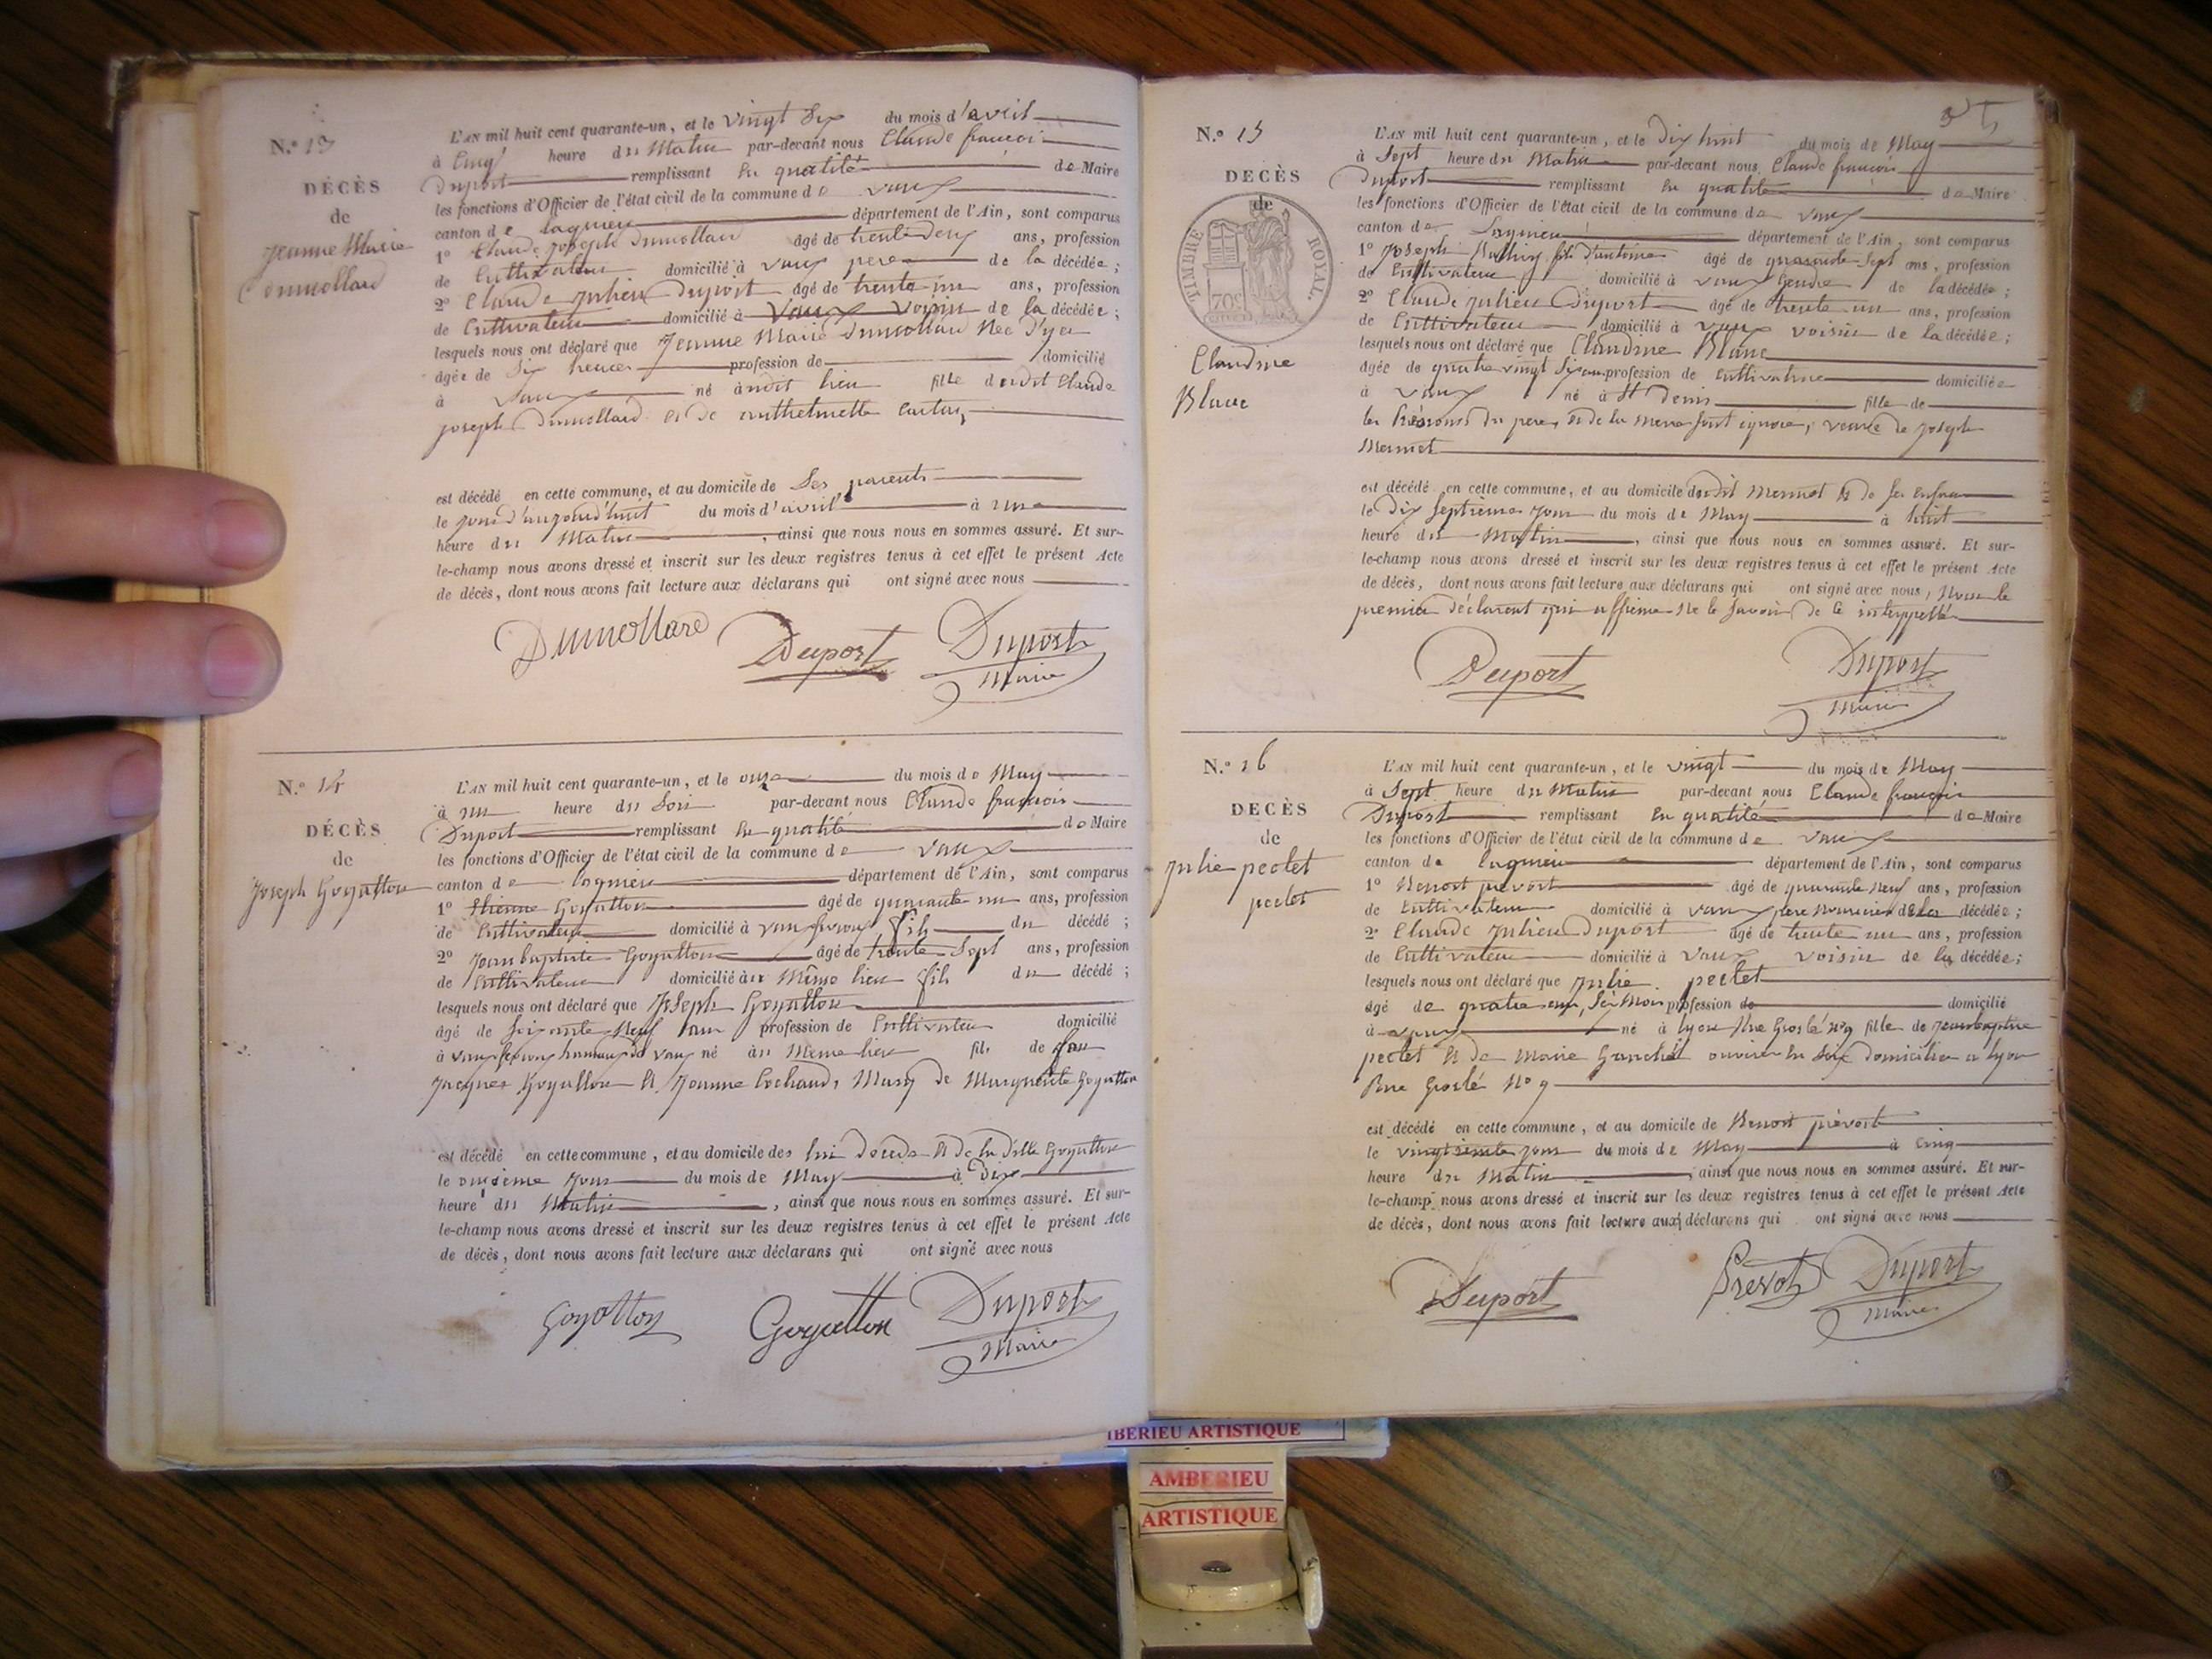 N.º 13
DÉCÈS
de
Jeanne Marie
Dumollard
L'AN mil huit cent quarante-un, et le vingt six du mois d'avril
à cinq heure du Matin par-devant nous Claude françois
Duport remplissant en qualité de Maire
les fonctions d'Officier de l'état civil de la commune de vaux
canton de lagnieu département de l'Ain, sont comparus
1º Claude Joseph Dumollard âgé de trente deux ans, profession
de Cultivateur domicilié à vaux pere de la décédée;
2º Claude Julien Duport âgé de trente un ans, profession
de Cultivateur domicilié à Vaux voisin de la décédée;
lesquels nous ont déclaré que Jeanne Marie Dumollard Née d'yer
âgée de six heures profession de domicilié
à Vaux né audit lieu fille dudit Claude
joseph Dumollard et de
est décédé en cette commune, et au domicile de Ses parents
le jour d'aujourd'huit du mois d'avril à une
heure du Matin, ainsi que nous nous en sommes assuré. Et sur-
le-champ nous avons dressé et inscrit sur les deux registres tenus à cet effet le présent Acte
de décès, dont nous avons fait lecture aux déclarans qui ont signé avec nous
Dumollard Duport Duport
Maire
N.º 14
DÉCÈS
de
Joseph Goyatton
L'AN mil huit cent quarante-un, et le onze du mois de May
à un heure du Soir par-devant nous Claude françois
Duport remplissant en qualité de Maire
les fonctions d'Officier de l'état civil de la commune de vaux
canton de lagnieu département de l'Ain, sont comparus
1º Etienne Goyatton âgé de quarante un ans, profession
de Cultivateur domicilié à vaux fils du décédé;
2º Jean baptiste Goyatton âgé de trente Sept ans, profession
de Cultivateur domicilié au Même lieu fils du décédé;
lesquels nous ont déclaré que Joseph Goyatton
âgé de soixante Neuf ans profession de Cultivateur domicilié
à vaux hameau de vaux né au Meme lieu fils de feu
Jacques Goyatton et Jeanne Cochaud, Mary de Marguerite Goyatton
est décédé en cette commune, et au domicile des et de la ditte Goyatton
le onzieme Jour du mois de May à Dix
heure du Matin, ainsi que nous nous en sommes assuré. Et sur-
le-champ nous avons dressé et inscrit sur les deux registres tenus à cet effet le présent Acte
de décès, dont nous avons fait lecture aux déclarans qui ont signé avec nous
Goyatton Goyatton Duport
Maire
N.º 15
DECÈS
de
TIMBRE ROYAL.
70c
Claudine
Blanc
L'AN mil huit cent quarante-un, et le Dix huit du mois de May
à Sept heure du Matin par-devant nous Claude françois
Duport remplissant en qualité de Maire
les fonctions d'Officier de l'état civil de la commune de vaux
canton de Lagnieu département de l'Ain, sont comparus
1º Joseph fils d'antoine âgé de quarante Sept ans, profession
de Cultivateur domicilié à vaux Gendre de la décédée;
2º Claude Julien Duport âgé de trente un ans, profession
de Cultivateur domicilié à vaux voisin de la décédée;
lesquels nous ont déclaré que Claudine Blanc
âgée de quatre vingt Six ans profession de Cultivatrice domiciliée
à vaux né à St Denis fille de
les Prénoms du pere et de la mere sont ignoré, veuve de Joseph
Mermet
est décédé en cette commune, et au domicile dudit Mermet et de
le Dix Septieme Jour du mois de May à huit
heure du Matin, ainsi que nous nous en sommes assuré. Et sur-
le-champ nous avons dressé et inscrit sur les deux registres tenus à cet effet le présent Acte
de décès, dont nous avons fait lecture aux déclarans qui ont signé avec nous, Non le
premier déclarent qui affirme Ne le Savoir de ce interppellé
Duport Duport
Maire
N.º 16
DECÈS
de
Julie peclet
peclet
L'AN mil huit cent quarante-un, et le vingt du mois de May
à Sept heure du Matin par-devant nous Claude françois
Duport remplissant en qualité de Maire
les fonctions d'Officier de l'état civil de la commune de vaux
canton de lagnieu département de l'Ain, sont comparus
1º Benoit prevost âgé de quarante Neuf ans, profession
de Cultivateur domicilié à vaux pere Nouricier de la décédée;
2º Claude Julien Duport âgé de trente un ans, profession
de Cultivateur domicilié à Vaux voisin de la décédée;
lesquels nous ont déclaré que Julie peclet
âgé de quatre ans, Six Mois profession de domicilié
à né à lyon Rue Grolé nº9 fille de Jean baptiste
peclet et de Marie ouvrier en Soye domicilier a lyon
Rue Grolé Nº 9
est décédé en cette commune, et au domicile de Benoit prévost
le vingtieme jour du mois de May à cinq
heure du Matin, ainsi que nous nous en sommes assuré. Et sur-
le-champ nous avons dressé et inscrit sur les deux registres tenus à cet effet le présent Acte
de décès, dont nous avons fait lecture aux déclarans qui ont signé avec nous
Duport Prevost Duport
Maire
IBERIEU ARTISTIQUE
AMBERIEU
ARTISTIQUE